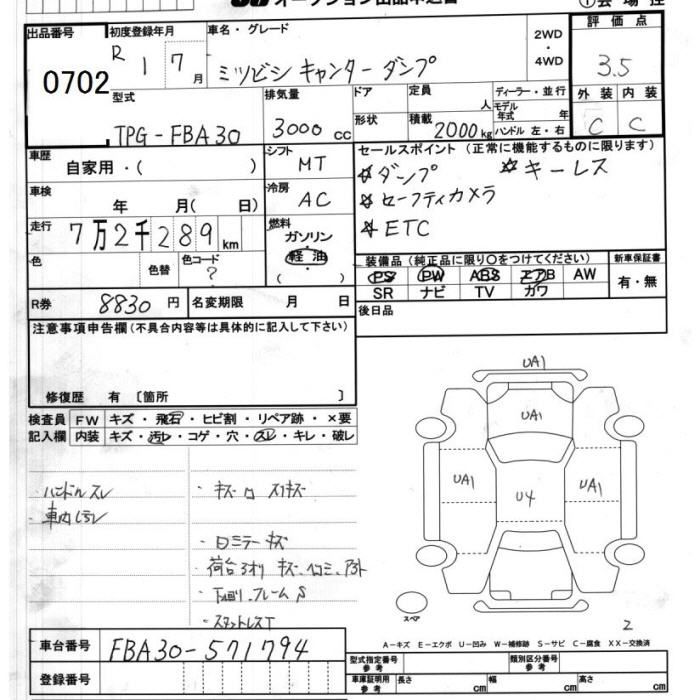 オークション出品申込書
会場控
出品番号
0702
初度登録年月
R 1 7月
車名・グレード
ミツビシ キャンター ダンプ
2WD
・
4WD
評価点
3.5
型式
TPG-FBA30
排気量
3000cc
ドア
形状
定員
人
積載
2000kg
ディーラー・並行
モデル年式 年
ハンドル 左・右
外装 内装
C C
車歴
自家用・( )
シフト
MT
セールスポイント (正常に機能するものに限ります)
☆ダンプ ☆キーレス
☆セーフティカメラ
☆ETC
車検
年 月( 日)
冷房
AC
走行
7万2千289km
燃料
ガソリン
軽油
( )
色
色替
色コード
?
装備品 (純正品に限り〇をつけてください)
PS PW ABS エアB AW
SR ナビ TV カワ
新車保証書
有・無
R券
8830円
名変期限 月 日
後日品
注意事項申告欄(不具合内容等は具体的に記入して下さい)
修復歴 有 〔箇所 〕
検査員 FW キズ・飛石・ヒビ割・リペア跡・×要
記入欄 内装 キズ・汚レ・コゲ・穴・スレ・キレ・破レ
・ハンドルスレ
・キズ凹 スリキズ
・ロミラーキズ
UA1
UA1
UA1
U4
UA1
スペア
2
車台番号
FBA30-571794
登録番号
A-キズ E-エクボ U-凹み W-補修跡 S-サビ C-腐食 XX-交換済
型式指定番号
参考
類別区分番号
参考
車庫証明用
参考
長さ cm
幅 cm
高さ cm